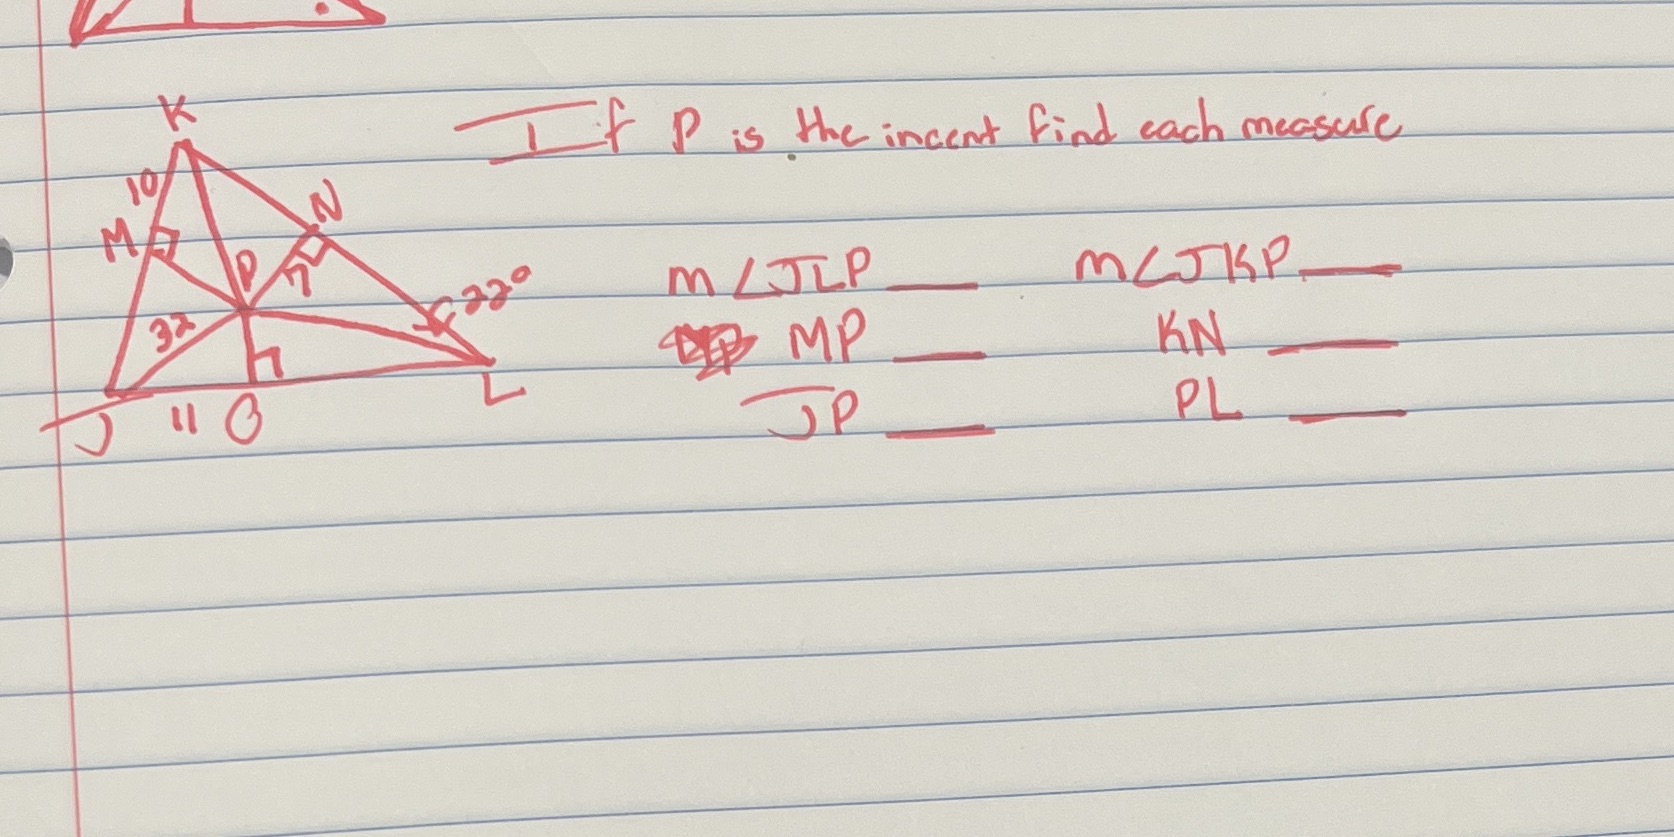 K
If P is the incent find each measure
10
N
M
P
7
22°
m∠JLP ___ m∠JKP ___
32
MP ___ KN ___
L
JP ___ PL ___
J 11 O